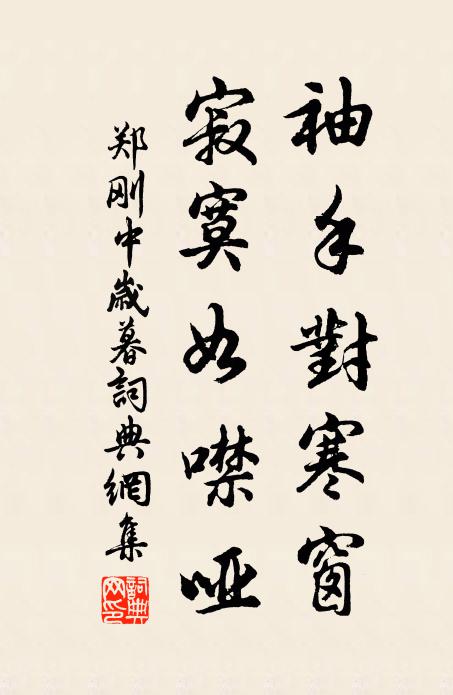 袖手對寒窗
寂寞如噤啞
郑刚中歲暮詞典網集
詞典網印